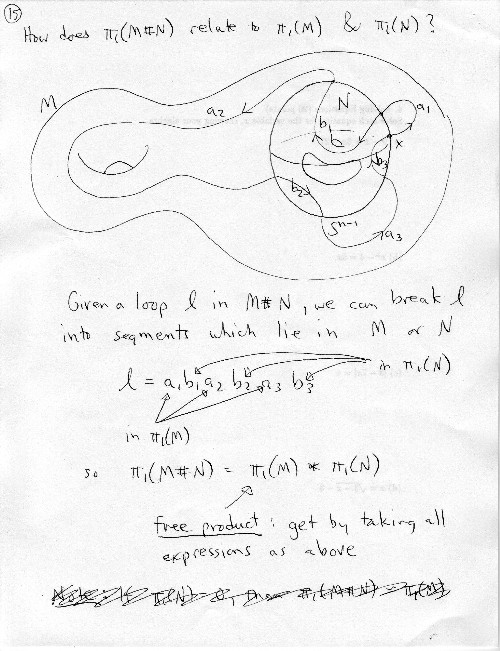 15
How does π₁(M#N) relate to π₁(M) & π₁(N)?
M
a₂
N
a₁
b₁
x
b₃
b₂
Sⁿ⁻¹
a₃
Given a loop l in M#N, we can break l
into segments which lie in M or N
l = a₁b₁a₂ b₂ a₃ b₃
in π₁(N)
in π₁(M)
so π₁(M#N) = π₁(M) * π₁(N)
free product: get by taking all
expressions as above